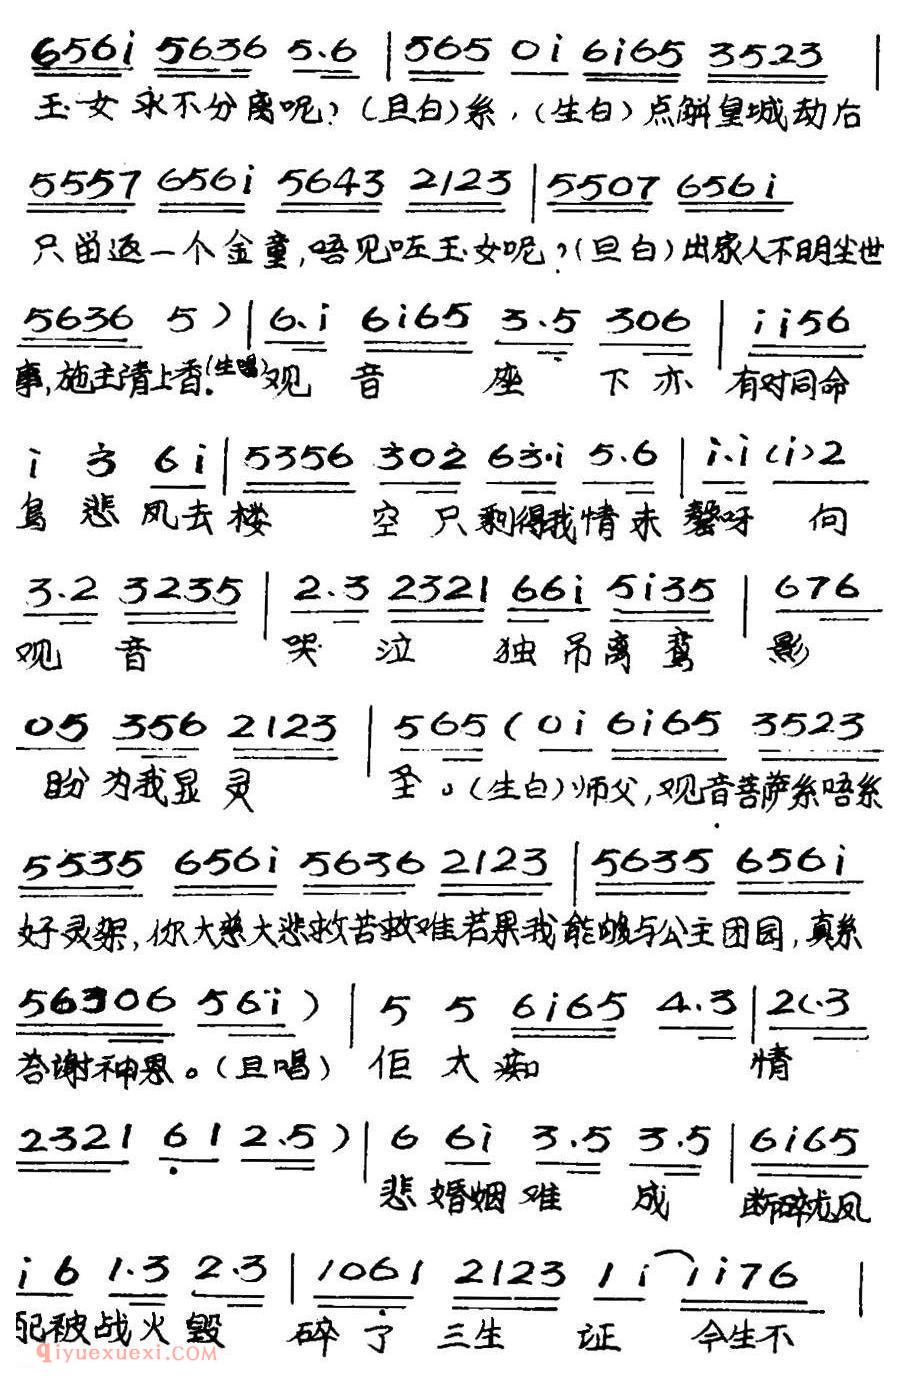 656i 5636 5.6 | 565 0i 6i65 3523 |
玉女永不分离呢？（旦白）系，（生白）点解皇城劫后
5557 656i 5643 2123 | 5507 656i
只留返一个金童，唔见咗玉女呢？（旦白）出家人不明尘世
5636 5 ) | 6.i 6i65 3.5 306 | ii56
事，施主请上香。（生唱）观音座下亦有对同命
i 3 6i | 5356 302 63.i 5.6 | i.i (i)2
鸟悲凤去楼空只剩得我情未罄呀向
3.2 3235 | 2.3 2321 66i 5i35 | 676
观音哭泣独吊离鸾影
05 356 2123 | 565 (0i 6i65 3523
盼为我显灵圣。（生白）师父，观音菩萨系唔系
5535 656i 5636 2123 | 5635 656i
好灵架，你大慈大悲救苦救难若果我能够与公主团园，真系
56306 56i ) | 5 5 6i65 4.3 | 2(.3
答谢神恩。（旦唱）佢太痴情
2321 61 2.5 ) | 6 6i 3.5 3.5 | 6i65
悲婚姻难成断碎龙凤
i6 1.3 2.3 | 1061 2123 1i | ii76 |
配被战火毁碎了三生证今生不
qiyuexuexi.com